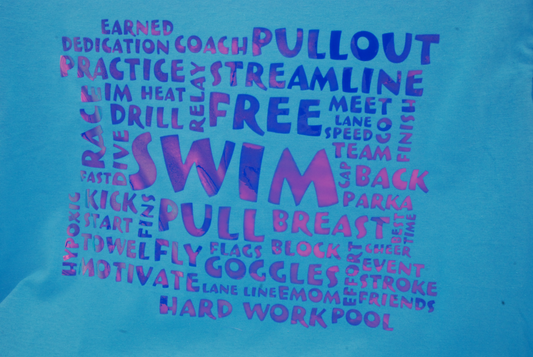 EARNED
DEDICATION COACH PULLOUT
PRACTICE RELAY STREAMLINE
RACE IM HEAT FREE MEET FINISH
DRILL LANE GO
SPEED
DIVE SWIM TEAM
FAST GAP BACK
HYPOXIC KICK FINS PULL BREAST PARKA
START BEST TIME
TOWEL FLY FLAGS BLOCK EFFORT CHEER
GOGGLES EVENT
MOTIVATE LANE LINE EMOM STROKE
FRIENDS
HARD WORK POOL